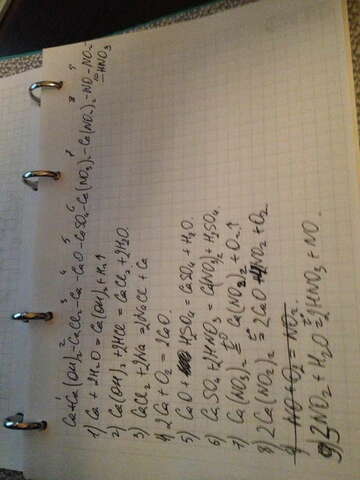 Ca-Ca(OH)₂-CaCl₂-Ca-CaO-CaSO₄-Ca(NO₃)₂-Ca(NO₂)₂-NO-NO₂-HNO₃
1) Ca + 2H₂O = Ca(OH)₂ + H₂↑
2) Ca(OH)₂ + 2HCl = CaCl₂ + 2H₂O.
3) CaCl₂ + 2Na = 2NaCl + Ca
4) 2Ca + O₂ = 2CaO.
5) CaO + H₂SO₄ = CaSO₄ + H₂O.
6) CaSO₄ + 2HNO₃ = Ca(NO₃)₂ + H₂SO₄
7) Ca(NO₃)₂ = Ca(NO₂)₂ + O₂↑
8) 2Ca(NO₂)₂ = 2CaO + 4NO₂ + O₂.
NO + O₂ = NO₂.
9) 3NO₂ + H₂O = 2HNO₃ + NO.